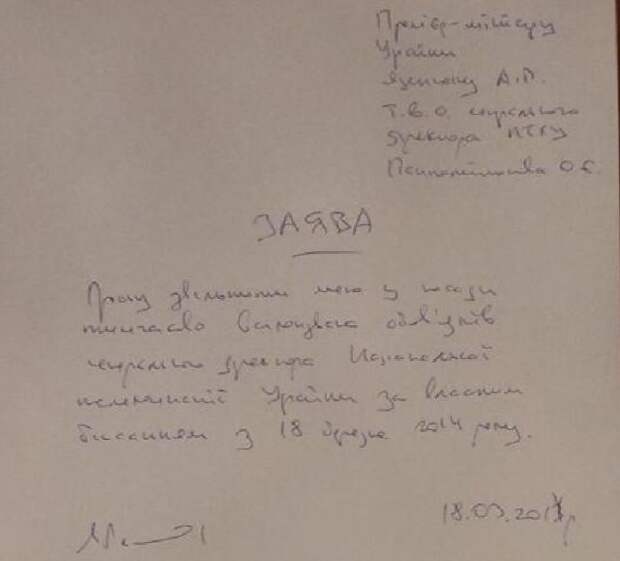 Прем'єр-міністру
України
Яценюку А.П.
Т.в.о. генерального
директора НТКУ
Пантелеймонова О.Є.
ЗАЯВА
Прошу звільнити мене з посади
тимчасово виконувача обов'язків
генерального директора Національної
телекомпанії України за власним
бажанням з 18 березня 2014 року.
18.03.2014р